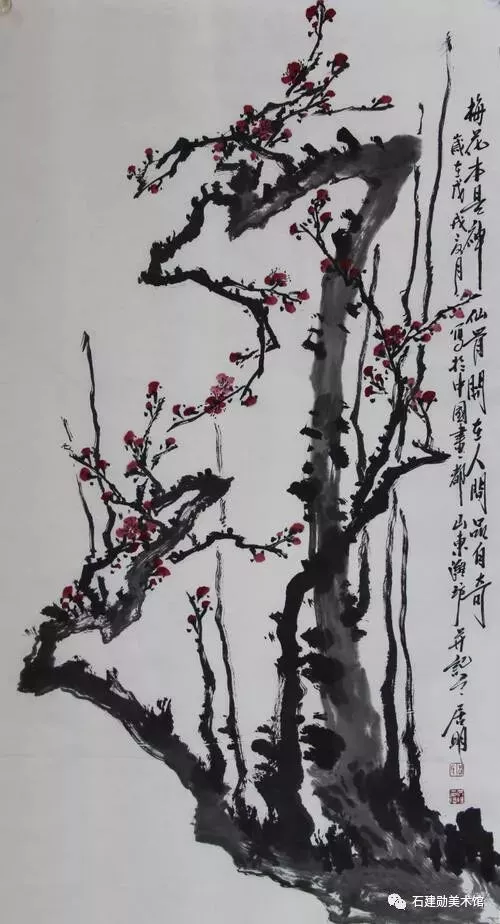 梅花本是神仙骨開在人間品自奇
歲在戊戌夏月寫於中國畫都山東濰坊并記之居明
石建勋美术馆